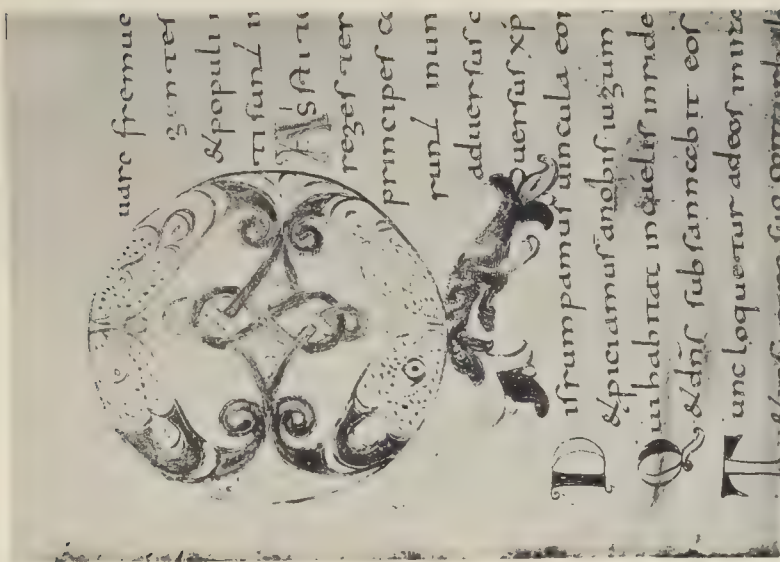 uare fremue
gentes
&populi
ti sunt i
Astite
reges ter
principes c
runt inun
aduersus
uersus xp
Disrumpamus uincula eor
&piciamus anobis iugum
Qui habitat incaelis inride
&dn̄s subsannabit eos
Tunc loquetur adeos inira